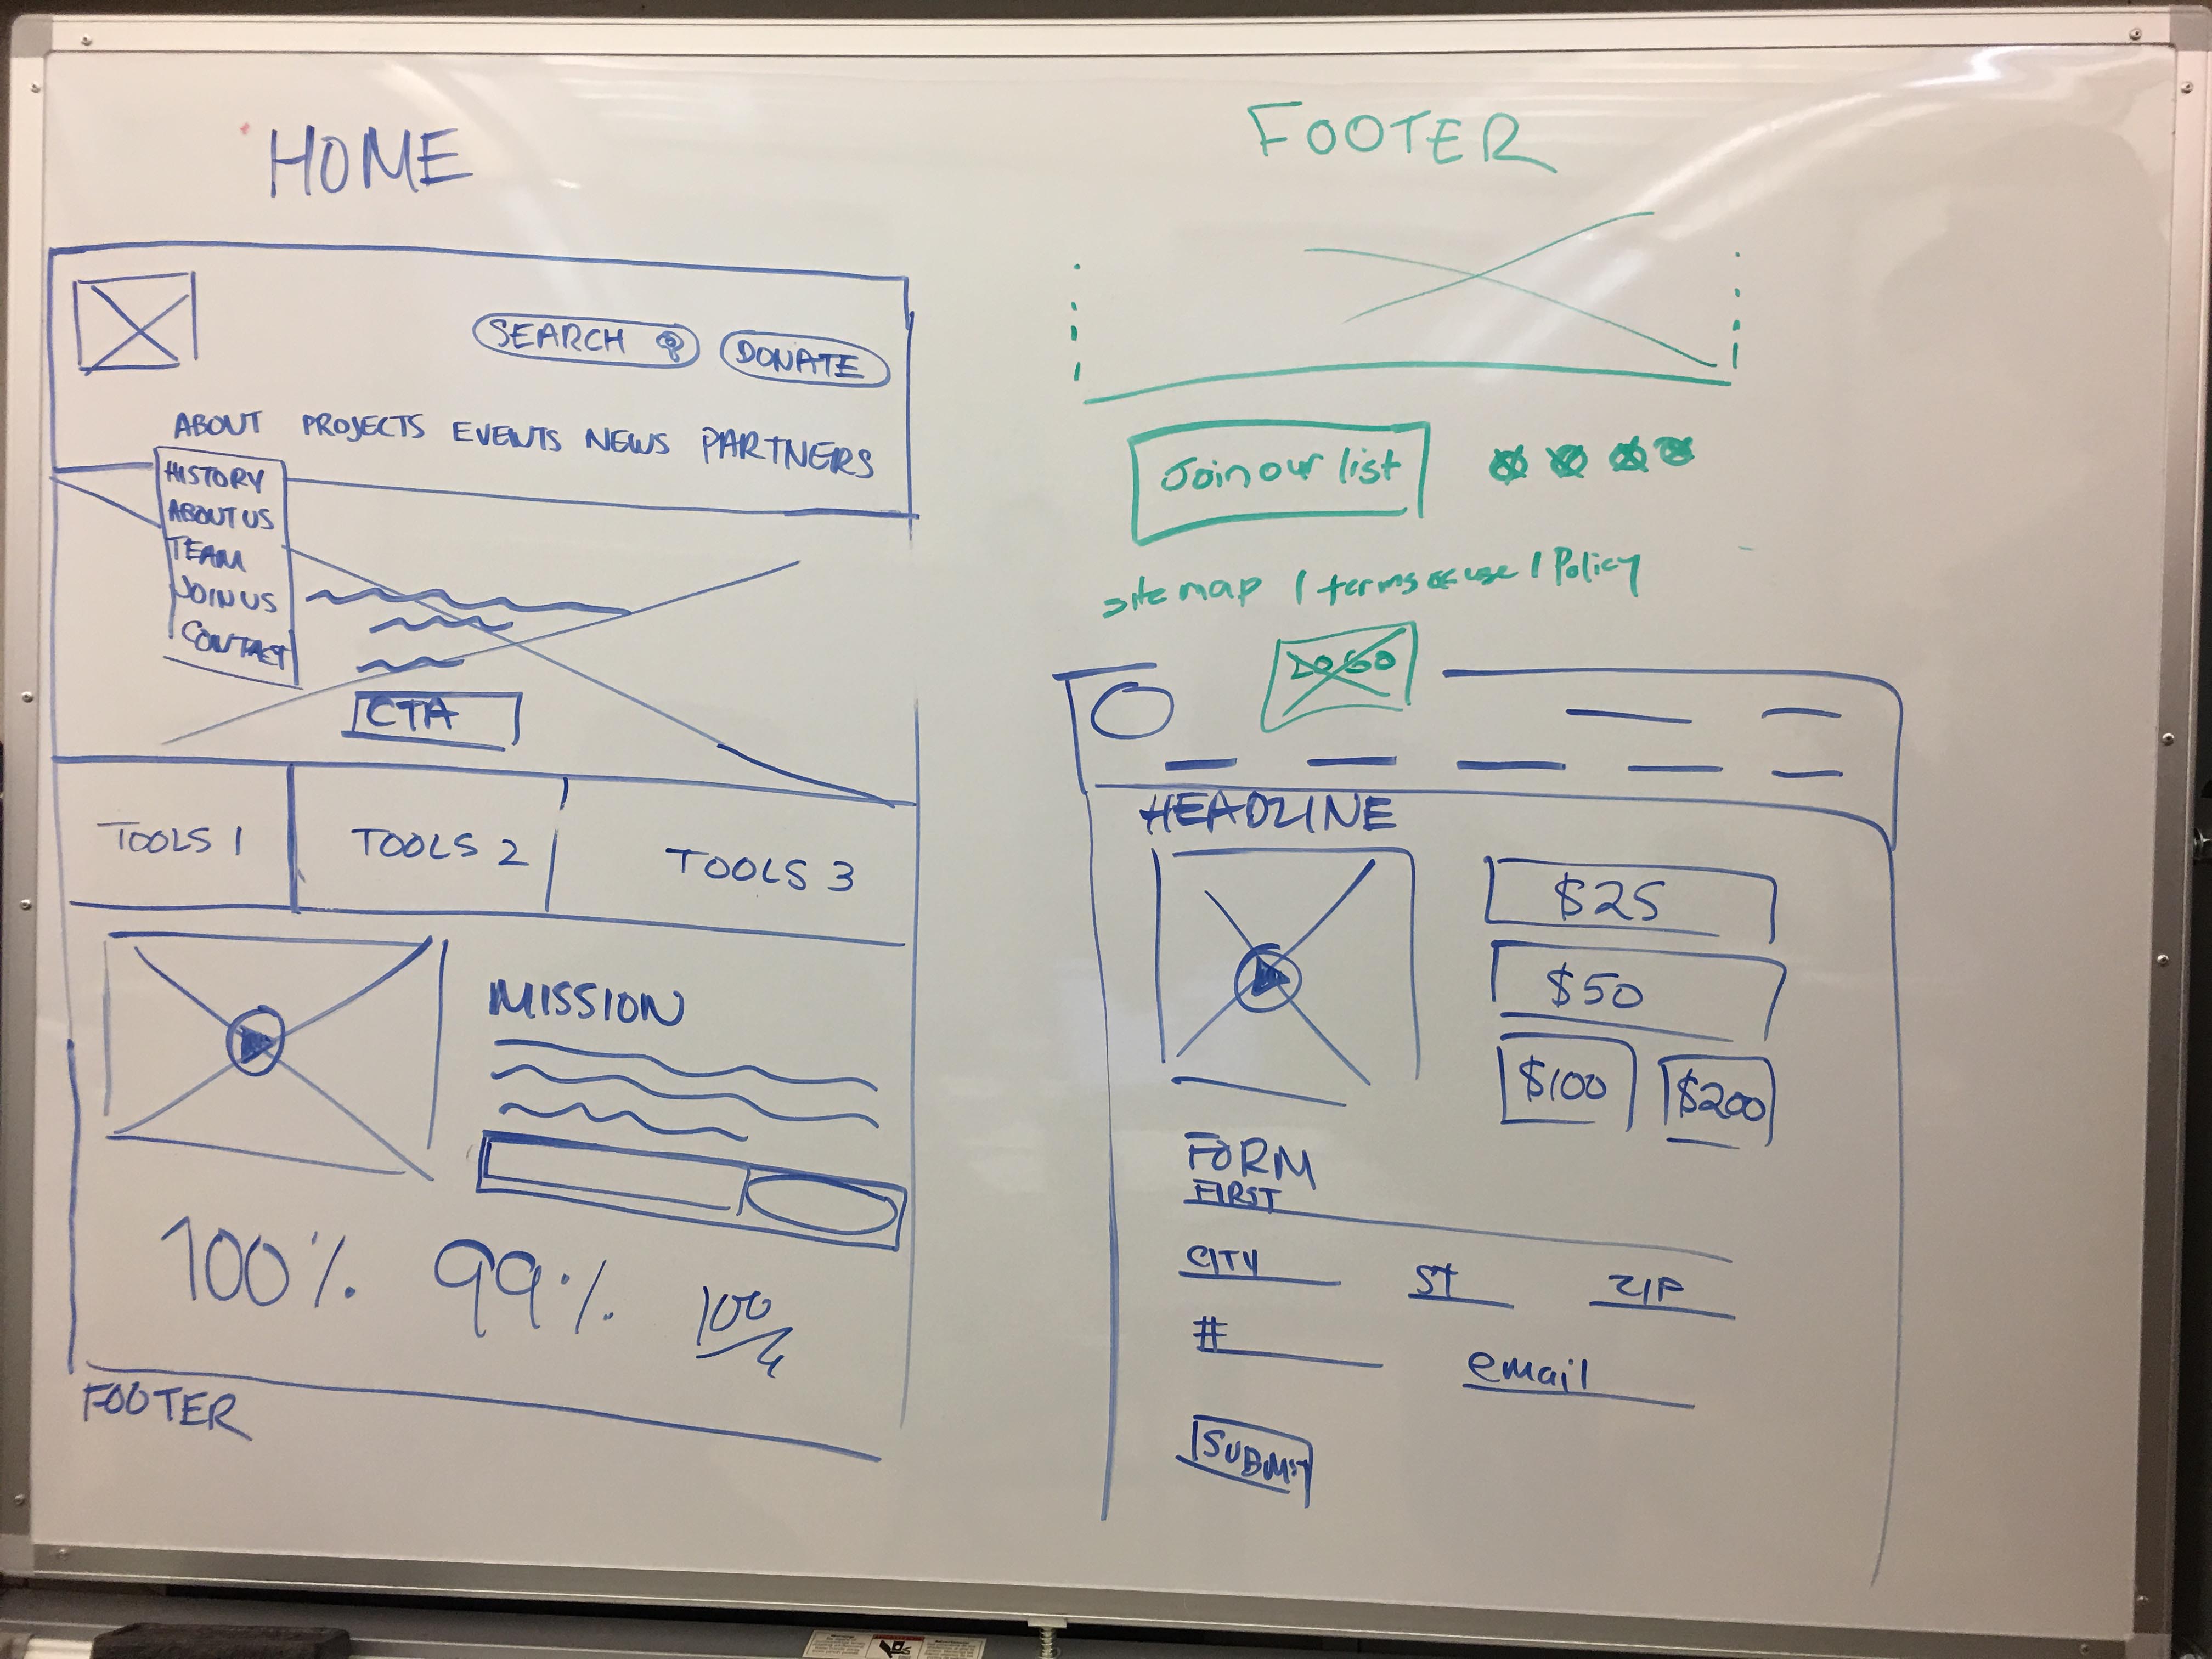 HOME
SEARCH
DONATE
ABOUT PROJECTS EVENTS NEWS PARTNERS
HISTORY
ABOUT US
TEAM
JOIN US
CONTACT
CTA
TOOLS 1
TOOLS 2
TOOLS 3
MISSION
100% 99% 100/4
FOOTER
FOOTER
Join our list
site map | terms of use | Policy
LOGO
HEADLINE
$25
$50
$100
$200
FORM
FIRST
CITY ST ZIP
# email
SUBMIT